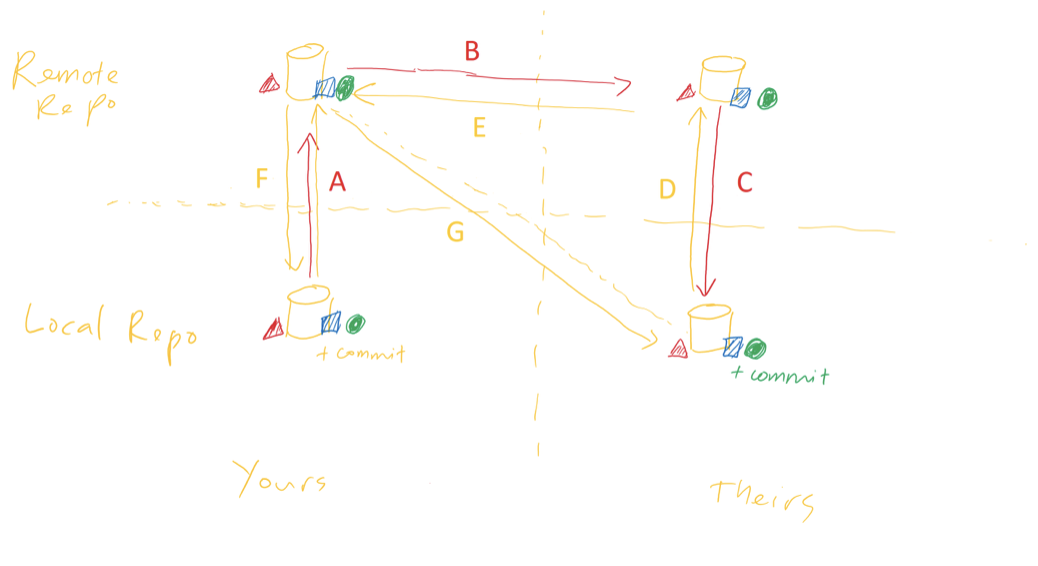 B
Remote
Repo
E
F
A
D
C
G
Local Repo
+ commit
+ commit
Yours
Theirs